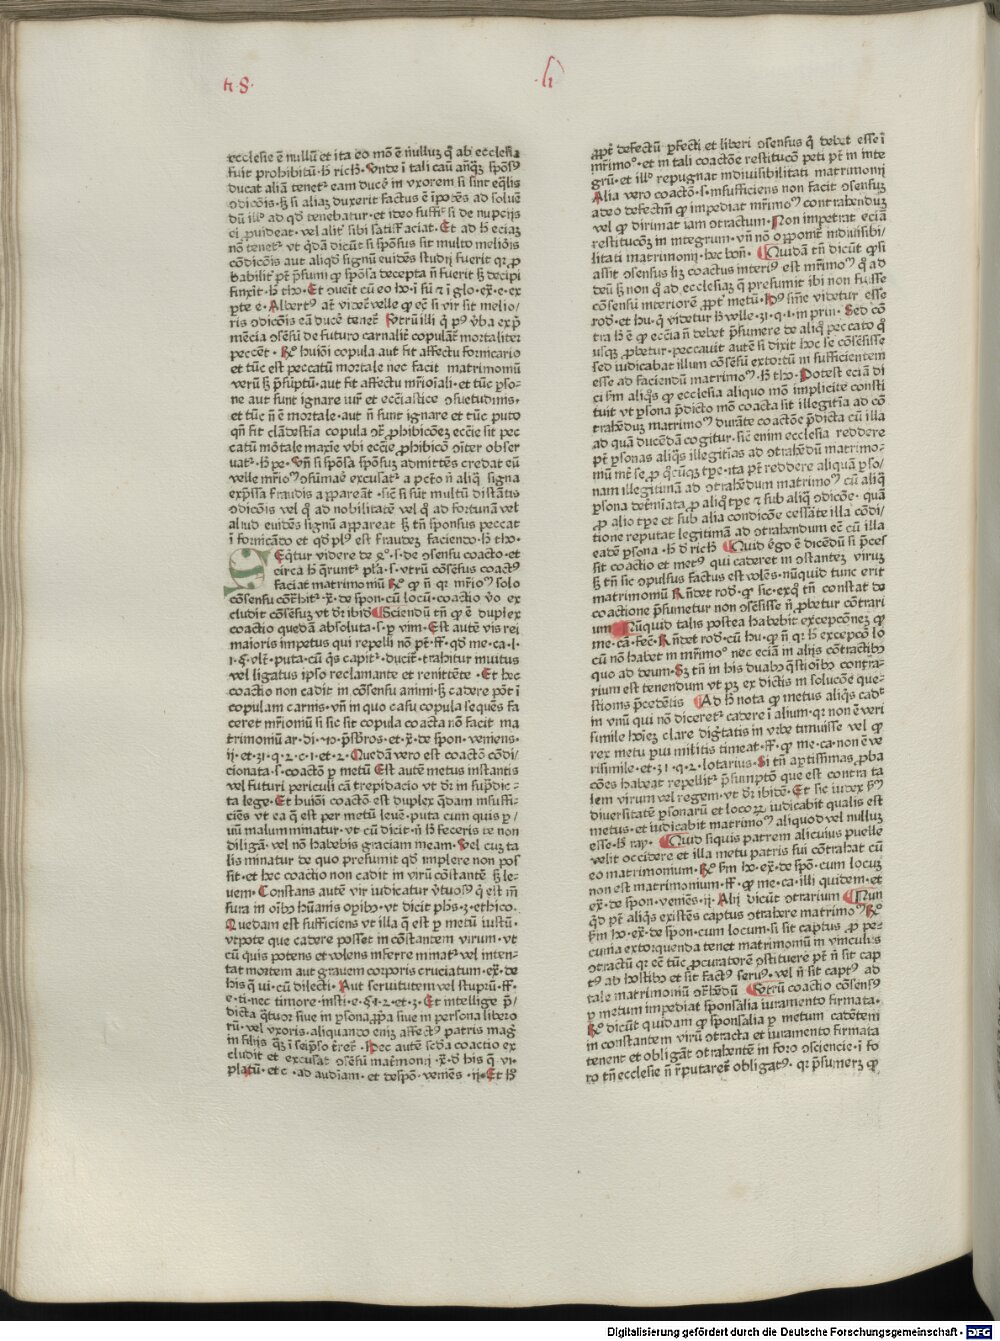 tt 8
li
ecclesie ē nullū et ita eo mō ē nulluȝ qͥ ab ecclesia
fuit prohibitū · h̄ rich · Unde ī tali casu añqȝ spōsꝰ
ducat aliā tenetᵉ eam ducē in vxorem si sint eq̄lis
ꝯdicōis · sȝ si aliaȝ duxerit factus ē īpotēs ad soluē
dū illᵈ ad qd̄ tenebatur · et ideo suffiᵗ si de nupcijs
ci ꝓuideat · vel alitᵉ sibi satisfaciat · Et ad h̄ eciaȝ
nō tenetᵉ vt qdā dicūt si spōsus sit multo melioīs
cōdicōis aut aliqd̄ signū euidēs
babilitᵉ pt̄ p̄sumi ꝙ spōsa decepta ñ fuerit sȝ decipi
finxit · h̄ tho · Et ꝯueit cū eo ho · i sū
pte e · Albertꝰ at̄ videtᵉ velle ꝙ eē si vir sit melio/
ris ꝯdicōis eā ducē tenetᵉ Vtrū illi q̄ pꝰ v̄ba exp̄
mēcia ꝯsēsū de futuro carnalitᵉ copulātᵉ mortaliter
peccēt · Rᵒ huiōi copula aut fit affectu fornicario
et tūc est peccatū mortale nec facit matrimomū
verū sȝ p̄suptū · aut fit affectu mr̄ioīali · et tūc pso-
ne aut sunt ignare iurᵉ et ecc̄iastice ꝯsuetudinis ·
et tūc ñ ē mortale · aut ñ sunt ignare et tūc puto
qñ fit clādestīa copula ꝯtᵃ ꝓhibicōeȝ ecc̄ie sit pec
catū mōtale maxīe vbi ecc̄ie ꝓhibicō ꝯīter obser
uatᵉ · h̄ pe · Uñ si spōsa spōsuȝ admittēs credat eū
velle mr̄ioᵐ ꝯsūmāe excusatᵉ a pctō ñ aliqᵃ signa
exp̄ssa fraudis appareāt · sic si sūt multū distātis
ꝯdicōis vel qͥ ad nobilitatē vel qͥ ad fortunā vel
aliud euidēs signū appareat sȝ tñ sponsus peccat
ī fornicādo et qd̄ plꝰ est fraudeȝ faciendo h̄ tho ·
Seqͥtur videre de gᵒ · s · de ꝯsensu coacto · et
circa h̄ q̄runtᵉ pla · s · vtrū cōsēsus coactꝰ
faciat matrimoniū Rᵒ ꝙ ñ qꝛ mr̄ioᵐ solo
cōsensu cōtᵃhitᵉ · de spon · cū locū · coactio v̄o ex
cludit cōsēsuȝ vt dr̄ ibid Sciendū tñ ꝙ ē duplex
coactio quedā absoluta · s · p vim · Est autē vis rei
maioris impetus qui repelli nō pt̄ ff · qd̄ me · ca · l ·
i · § · vlt · puta · cū qͥs capitᵉ · ducitᵉ · trahitur inuitus
vel ligatus ipso reclamante et renittēte · Et hec
coactio non cadit in cōsensu animi · sȝ cadere pōt ī
copulam carnis · vñ in quo casu copula sequēs fa
ceret mr̄ioniū si sic sit copula coacta nō facit ma
trimoniū ar · di · p̄sb̄ros · et · de spon · veniens ·
ij · et · 31 · q · 2 · c · 1 · et · 2 · Quedā vero est coactō cōdi/
cionata · s · coactō p metū Est autē metus instantis
vel futuri periculi cā trepidacio vt dr̄ in sup̄dic-
ta lege · Et huiōi coactō est duplex q̄dam insuffi-
ciēs vt ea q̄ est per metū leuē · puta cum quis p/
uū malum minatur · vt cū dicitᵉ · ñ h̄ feceris te non
diligā · vel nō habebis graciam meam · Vel cuȝ ta
lis minatur de quo presumitᵉ qd̄ implere non pos
sit · et hec coactio non cadit in virū cōstantē sȝ le-
uem · Constans autē vir iudicatur v̄tuosꝰ q̄ est m̄
sura in oībꝰ hūanis opibꝰ · vt dicit phs · 3 · ethico ·
Quedam est sufficiens vt illa q̄ est p metū iustū ·
vtpote que cadere posset in cōstantem virum · vt
cū quis potens et volens inferre minatᵉ vel inten-
tat mortem aut grauem corporis cruciatum · ex · de
his q̄ vi · cū dilecti · Aut seruitutem vel stuprū · ff ·
e · ti · nec timore · insti · e · § · 1 · 2 · et · 3 · Et intellige p̄/
dicta q̄tuor siue in psona ꝓpa siue in persona libero
rū · vel vxoris · aliquando eniȝ affectꝰ patris magᶦ
in filijs qȝ ī seipso
cludit et excusat ꝯsēsū matrmonij · d · his q̄ vi ·
platū · et c · ad audiam · et de spō · veniēs · ij · Et h̄
ꝓpt̄ defectū pfecti et liberi ꝯsensus qͥ debet esse ī
mr̄imoᵒ · et in tali coactōe restitucō peti pt̄ in inte
grū · et illᵈ repugnat indiuisibilitati matrimonij
Alia vero coactō · s · insufficiens non facit ꝯsensuȝ
adeo defectiuū ꝙ impediat mr̄imoᵐ contrabenduȝ
vel ꝙ dirimat iam ꝯtractum · Non impetrat eciā
restitucōȝ in integrum · vñ nō opponitᵉ indiuisibi/
litati matrimonij · hec bon · Quidā tñ dicūt ꝙ si
assit ꝯsensus lȝ coactus interiꝰ est mr̄imoᵐ qͥ ad
deū sȝ non qͥ ad ecclesiaȝ q̄ presumit ibi non fuisse
cōsensū interiorē ꝓpt̄ metū · videtur esse
rod · et hu · q̄ videtur h̄ velle · 31 · q · 1 · in prin · Sed cō
tra h̄ ē ꝙ ecc̄ia ñ debet p̄sumere de aliqᵒ peccato qͥ
usqȝ ꝓbetur · peccauit autē si dixit hoc se cōsēsisse
sed iudicabat illum cōsēsū extortū in sufficientem
esse ad faciendū matrimoᵐ · h̄ tho · Potest eciā di
ci ꝙ ecclesia aliquo mō implicite consti
tuit vt psona p̄dicto mō coacta sit illegitīa ad cō
trahēduȝ matrimoᵐ durāte coactōe p̄dicta cū illa
ad quā ducēdā cogitur · sic enim ecclesia reddere
pt̄ psonas aliqᵃs illegitias ad ꝯtrahēdū matrimo-
niū · ita pt̄ reddere aliquā pso/
nam illegitimā ad ꝯtrahēdum matrimoᵐ cū aliqᵃ
psona det̄miata ꝓ aliqͦ tpe ⁊ sub aliqᵃ ꝯdicōe · quā
ꝓ alio tpe et sub alia condicōe cessāte illa cōdi/
tione reputat legitimā ad ꝯtrahendum eē cū illa
eadē psona · h̄ d rich Quid ergo ē dicēdū si p̄ces
sit coactio et metꝰ qui caderet in ꝯstanteȝ viruȝ
sȝ tñ sic ꝯpulsus factus est volēs · nūquid tunc erit
matrimoniū Rn̄det rod · ꝙ sic · exqͦ tñ constat de
coactione p̄sumetur non ꝯsēsisse ñ ꝓbetur cōtrari
um Nūquid talis postea habebit excepcōneȝ ꝙ
me · cā · fecᵗ · Rn̄det rod · cū hu · ꝙ ñ qꝛ h̄ excepcō lo
cū nō habet in mr̄imoᵒ nec eciā in alijs cōtractibꝰ
quo ad deum · Sȝ tñ in his duabꝰ q̄stioibꝰ contra-
rium est tenendum vt pȝ ex dictis in solucōe que-
stionis p̄cedētis Ad h̄ nota ꝙ metus aliqͥs cadᵗ
in vnū qui nō diceretᵉ cadere ī alium · qꝛ non ē veri
simile hoīeȝ clare digᶦtatis in vrbe timuisse vel ꝙ
rex metu pui militis timeat · ff · ꝙ me · ca · non ē ve
risimile · et · 31 · q · 2 · lotarius · Si tñ aptissimas ꝓba
cōes habeat repellitᵉ p̄sumptō que est contra ta
lem virum vel regem · vt dr̄ ibidē · Et sic iudex sᵐ
diuersitatē psonarū et locoꝝ iudicabit qualis est
metus · et iudicabit matrimoᵐ aliquod vel nulluȝ
esse · h̄ ray · Quid si quis patrem alicuius puelle
velit occidere et illa metu patris sui cōtrahat cū
eo matrimonium · Rᵒ sᵐ ho · ex · de spō · cum locuȝ
non est matrimonium · ff · ꝙ me · ca · illi quidem · et
ex · de spon · veniēs · ij · Alij dicūt ꝯtrarium Nun
qͥd pt̄ aliqͥs existēs captus ꝯtrahere matrimoᵐ Rᵒ
sᵐ ho · ex · de spon · cum locum · si sit captus ꝓ pe-
cunia extorquenda tenet matrimoniū in vinculis
ꝯtractū qꝛ eciā tūc ꝓcuratorē ꝯstituere pt̄ ñ sit cap
tꝰ ab hostibꝰ et sit factꝰ seruꝰ · vel ñ sit captꝰ ad
tale matrimoniū ꝯtᵃhēdū Vtrū coactio cōsensꝰ
p metum impediat sponsalia iuramento firmata ·
Rᵒ dicūt quidam ꝙ sponsalia p metum cadētem
in constantem virū ꝯtracta et iuramento firmata
tenent et obligāt ꝯtrahentē in foro ꝯsciencie · ī fo
ro tñ ecclesie ñ r̄putaretᵉ obligatꝰ · qꝛ p̄sumereȝ ꝙ
Digitalisierung gefördert durch die Deutsche Forschungsgemeinschaft - DFG